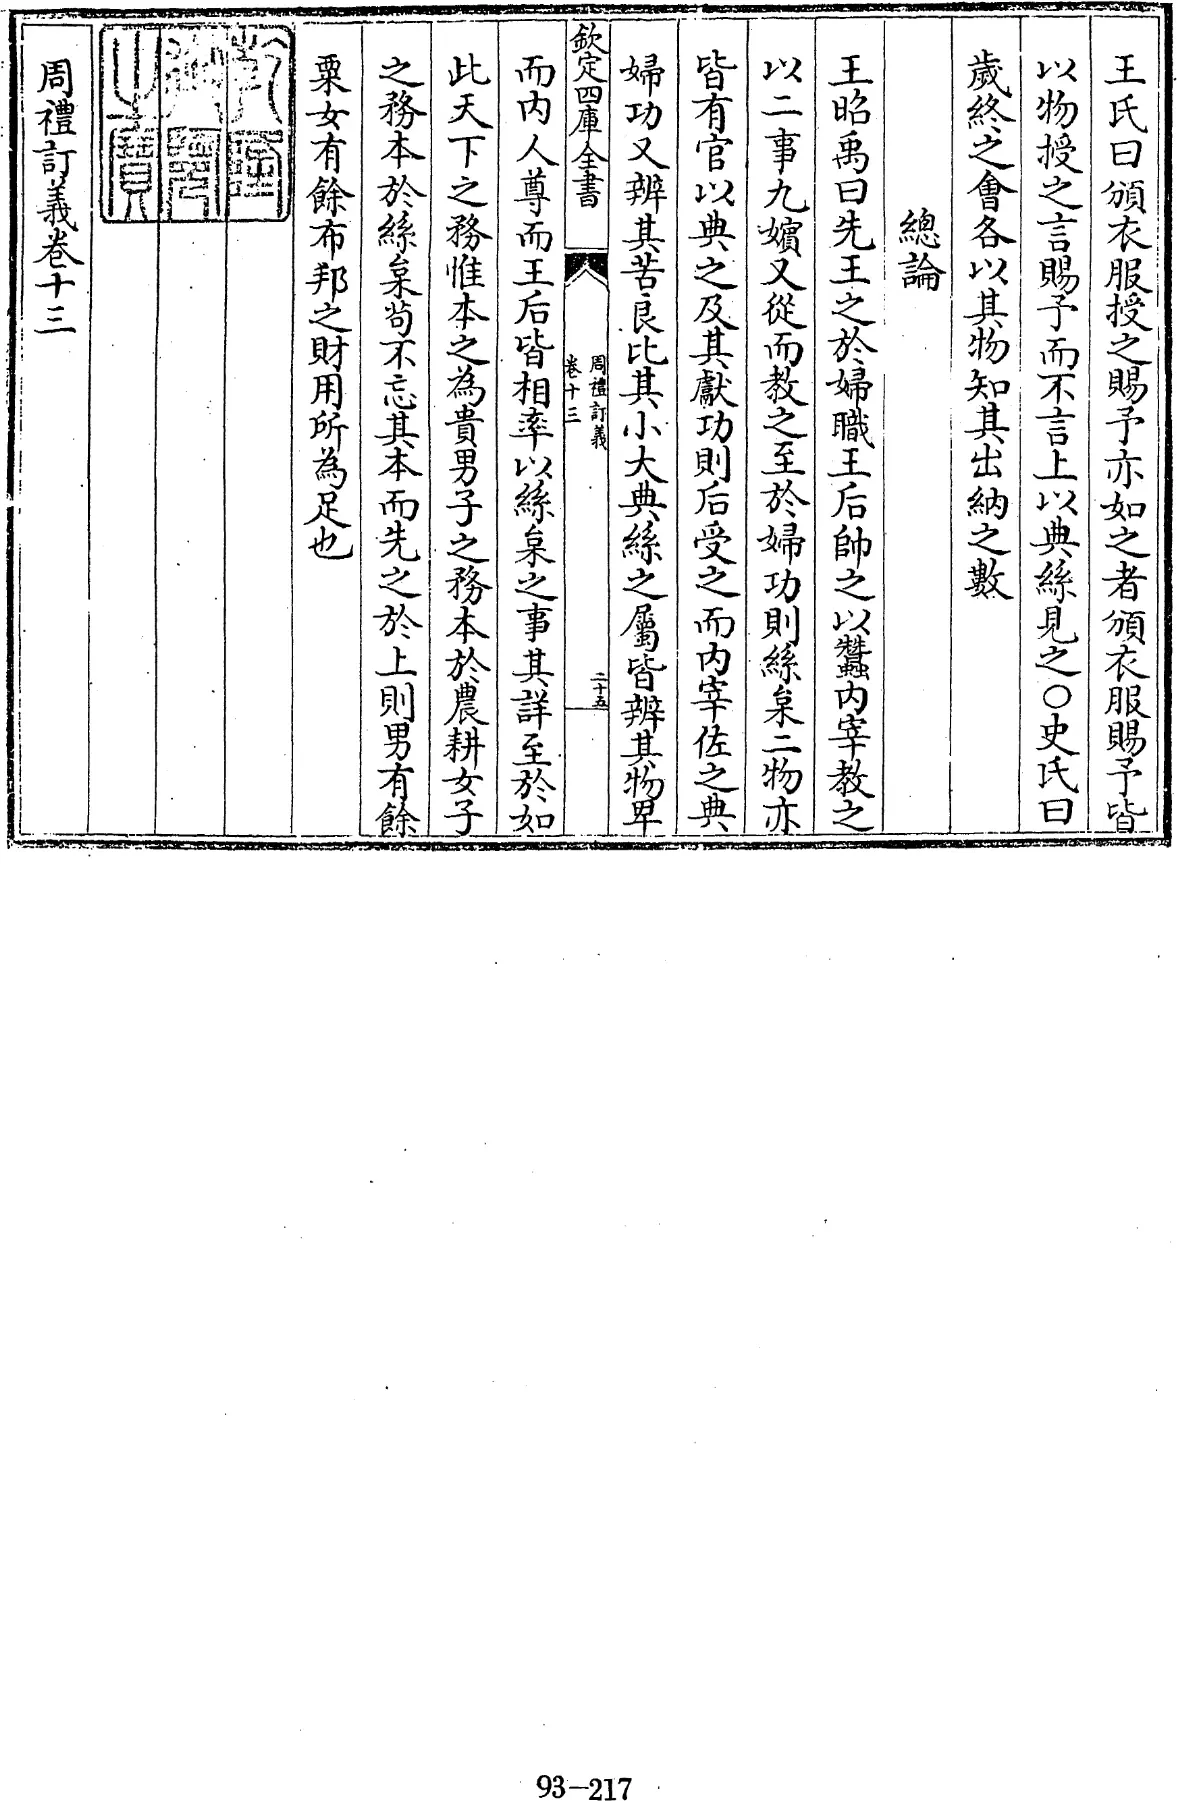 王氏曰頒衣服授之賜予亦如之者頒衣服賜予皆
以物授之言賜予而不言上以典絲見之○史氏曰
歲終之會各以其物知其出納之數
總論
王昭禹曰先王之於婦職王后帥之以蠶内宰教之
以二事九嬪又從而教之至於婦功則絲枲二物亦
皆有官以典之及其獻功則后受之而内宰佐之典
婦功又辨其苦良比其小大典絲之屬皆辨其物卑
欽定四庫全書
周禮訂義
卷十三
二十五
而内人尊而王后皆相率以絲枲之事其詳至於如
此天下之務惟本之為貴男子之務本於農耕女子
之務本於絲枲苟不忘其本而先之於上則男有餘
粟女有餘布邦之財用所為足也
乾隆
御覽
之寶
周禮訂義卷十三
93-217